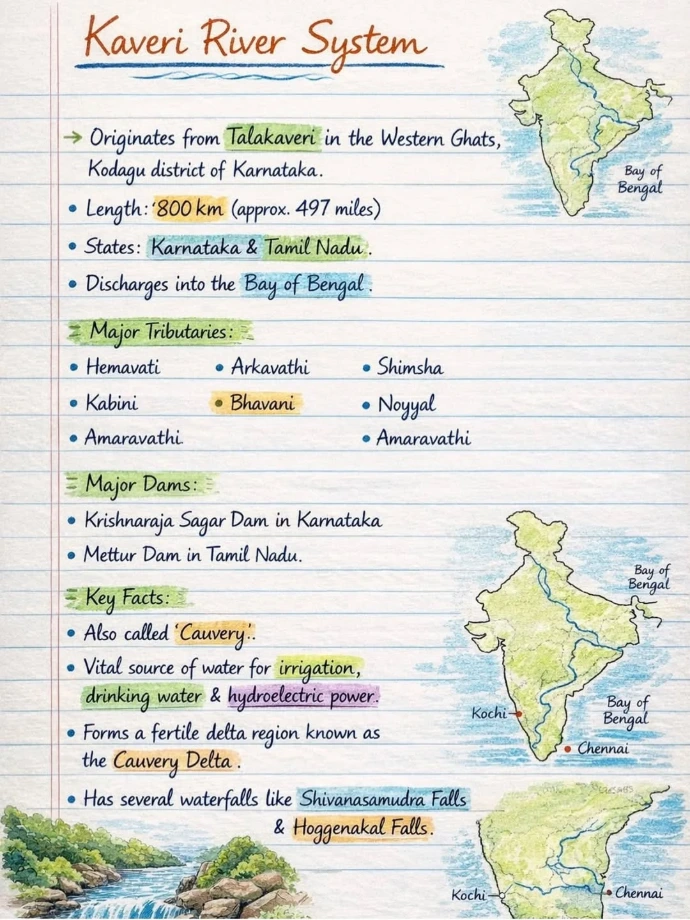 Kaveri River System
→ Originates from Talakaveri in the Western Ghats,
Kodagu district of Karnataka.
Bay of
Bengal
• Length: '800 km (approx. 497 miles)
• States: Karnataka & Tamil Nadu.
• Discharges into the Bay of Bengal.
Major Tributaries:
• Hemavati • Arkavathi • Shimsha
• Kabini • Bhavani • Noyyal
• Amaravathi • Amaravathi
Major Dams:
• Krishnaraja Sagar Dam in Karnataka
• Mettur Dam in Tamil Nadu.
Bay of
Bengal
Key Facts:
• Also called 'Cauvery'.
• Vital source of water for irrigation,
drinking water & hydroelectric power.
Kochi
Bay of
Bengal
Chennai
• Forms a fertile delta region known as
the Cauvery Delta.
• Has several waterfalls like Shivanasamudra Falls
& Hoggenakal Falls.
Kochi
Chennai